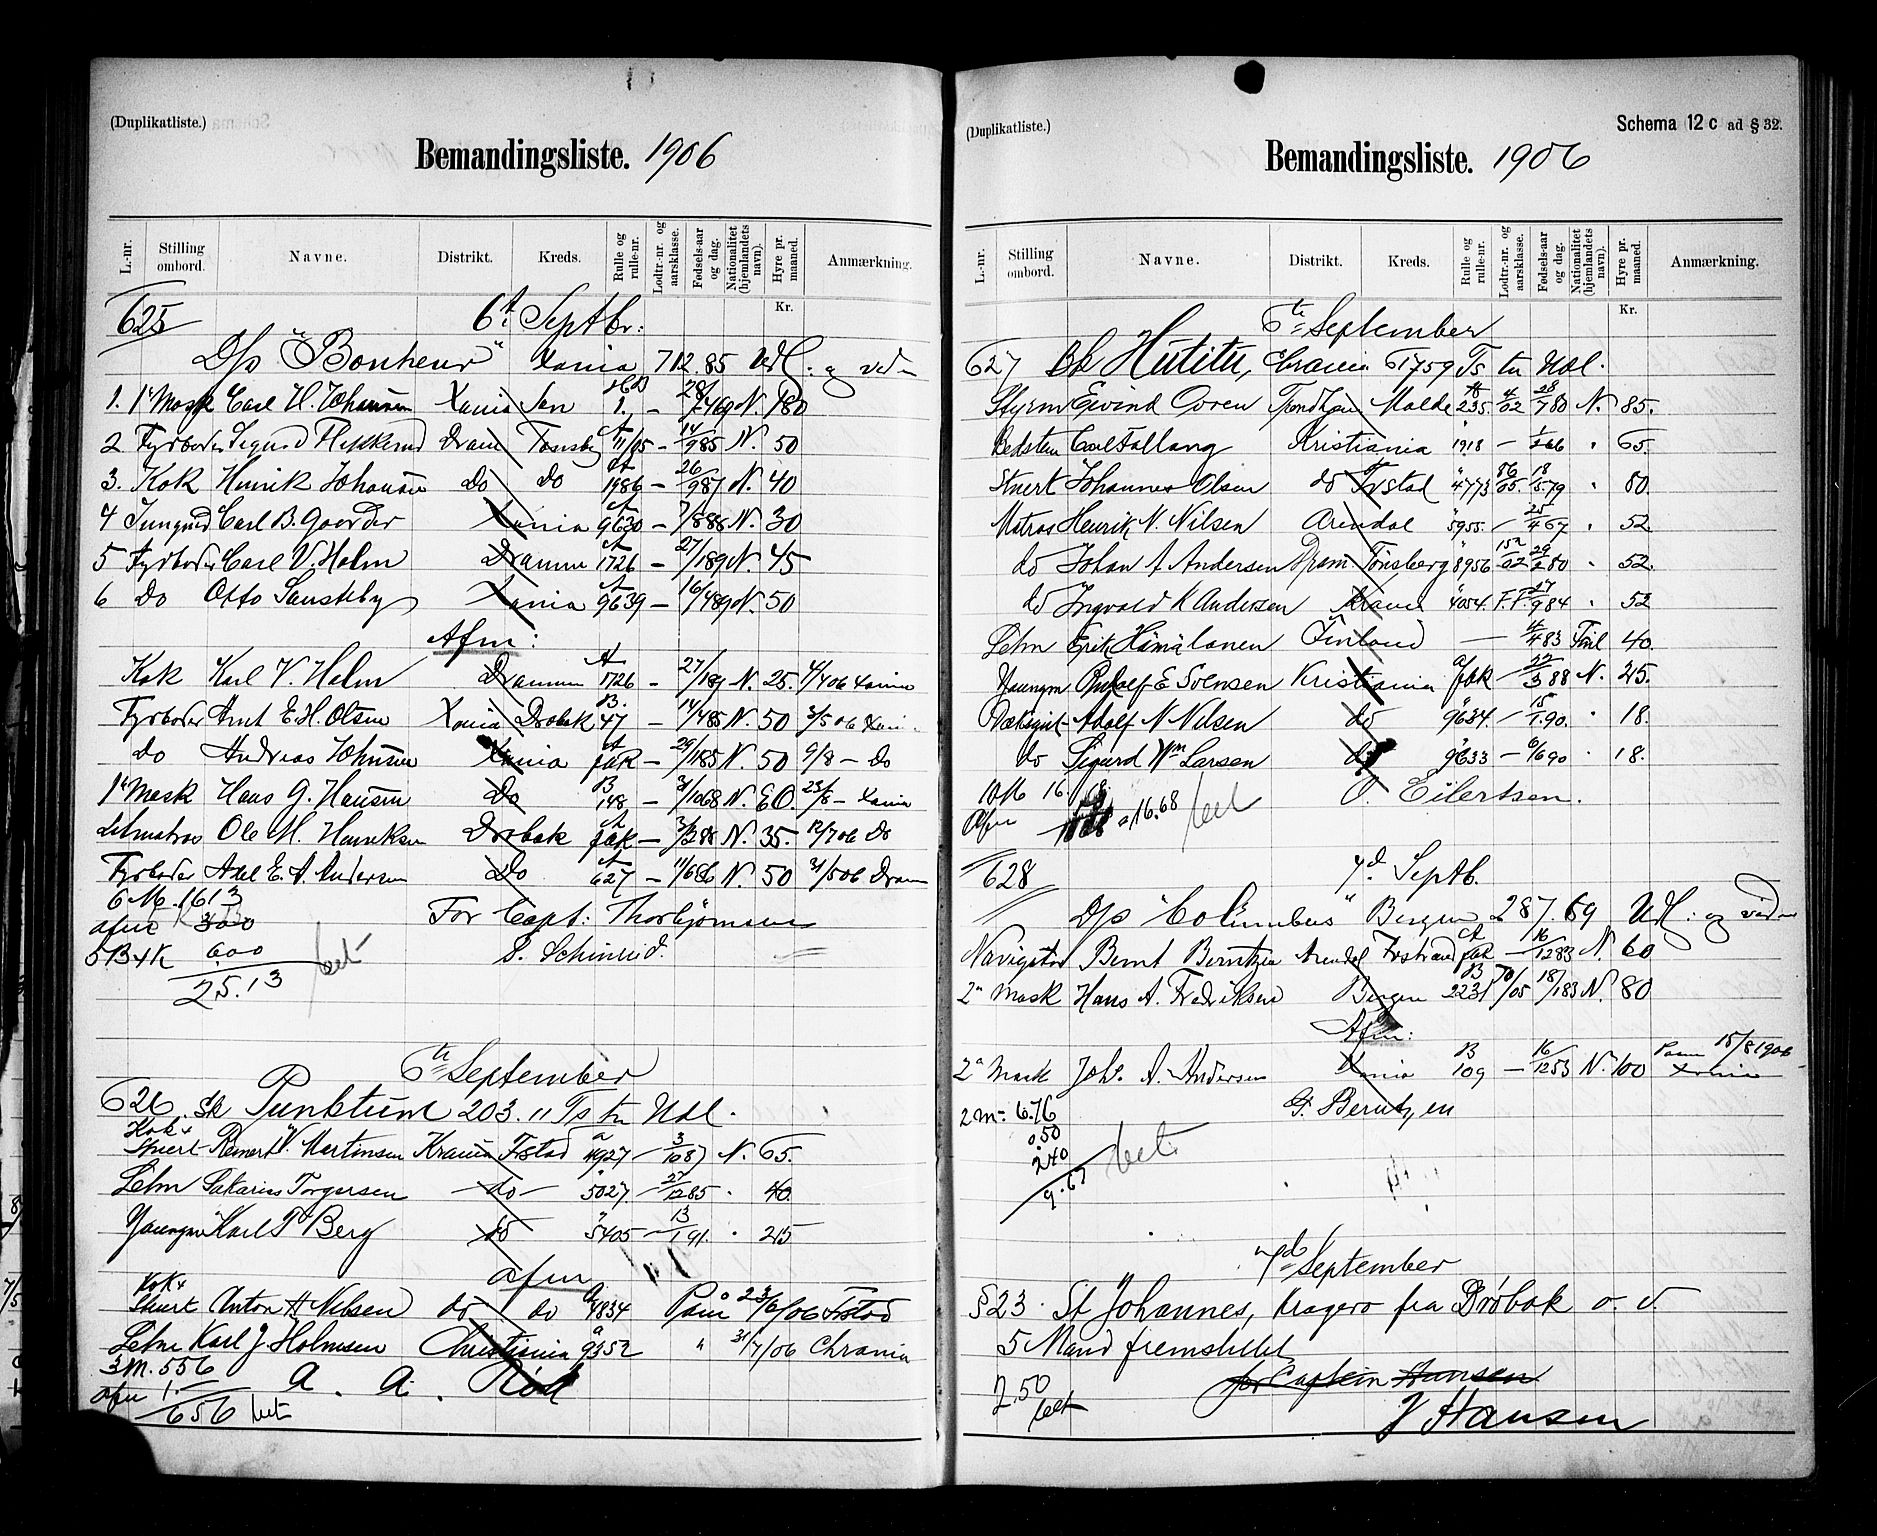 (Duplikatliste.)
Bemandingsliste. 1906
L.-nr. Stilling ombord. Navne. Distrikt. Kreds. Rulle og rulle-nr. Lodtr.-nr. og aarsklasse. Fødsels-aar og dag. Nationalitet (hjemlandets navn). Hyre pr. maaned. Anmærkning.
Kr.
625 6t Septbr:
D/s "Bonheur" Xania 712.85 Udl. og
1. 1ste Mask Carl H. Johansen Xania Søn 1. — 28/7 69 N. 180
2 Fyrbøder Sigurd Dram Tønsbg 14/9 85 N. 50
3. Kok Henrik Johansen Do Do 1986 — 26/9 87 N. 40
4 Jungmd Carl B. Xania 9630 — 7/8 88 N. 30
5 Fyrbøder Carl V. Holm Drammen 1726 — 27/1 89 N. 45
6 Do Otto Xania 9639 — 16/4 89 N. 50
Afm:
Kok Karl V. Holm Drammen 1726 — 27/1 89 N. 25. 4/4 06 Xania
Fyrbøder Arnt E. H. Olsen Xania Drøbak 47 — 14/4 85 N. 50 3/5 06 Xani
Do Andreas Johnsen Xania fak — 29/1 85 N. 50 9/8 — Do
1ste Mask Hans G. Hansen Do B 148 — 31/10 68 N. 23/8 — Xania
Letmatros Ole M. Henriksen Drøbak fak — 3/2 88 N. 35. 12/7 06 Do
Fyrbøder Axel E. A. Andersen Do 627 — 11/6 86 N. 50 31/5 06 Dram
6 M. 16 13
afm 300
600
25.13 bet
For Capt: Thorbjørnsen
6te September
626. Sk Punktum 203.11 Ts tr Udl.
Kok & Stuert Reinert V. Martinsen Krania Fstad 4927 — 3/10 87 N. 65.
Letm Sakarias Torgersen — do — 5027 — 27/12 85 . 40.
Youngm Karl Berg do 5405 — 13/1 91. . 25
afm
Kok & Stuert Anton H Nilsen do do 4834 Paam 23/6/06 Fstad
Letm Karl J. Holmsen Christiania 9352 " 31/7/06 Chrania
3 M. 5 56
afm 1.—
656 bet
A. A. Röd
(Duplikatliste.) Schema 12 c ad § 32.
Bemandingsliste. 1906
L.-nr. Stilling ombord. Navne. Distrikt. Kreds. Rulle og rulle-nr. Lodtr.-nr. og aarsklasse. Fødsels-aar og dag. Nationalitet (hjemlandets navn). Hyre pr. maaned. Anmærkning.
Kr.
6te September
627 Bk Hutitu, Crania 1759 Ts tr Udl.
Styrm Eivind Trondhjem Molde 235. 4/02 28/7 80 N. 85.
Bedstm Carl Fallang Kristiania 1918 — 1/2 66 " 65.
Stuert Johannes Olsen do Frstad " 4773 86/05. 18/5 79 " 80.
Matros Henrik N. Nilsen Arendal " 5955. — 25/4 67 " 52
do Johan A Andersen Dram Tønsberg " 8956 152/02 29/2 80 " 52.
do Ingvald K Andersen Krania " 4054. F.F. 27/9 84 " 52
Letm Erik Hämäläinen Finland — 4/4 83 Finl 40.
Youngm Rudolf E Svensen Kristiania fak — 22/3 88 N. 25.
Dæksgut Adolf N Nilsen do 9634. — 15/1 90. " 18.
do Sigurd Wm Larsen do 9633 — 6/6 90 " 18.
10 M 16.68
Afm a 16.68 bet
O. Eilertsen.
628 7d Septb.
D/s "Columbus" Bergen 287.69 Udl: og
Navigatør Bernt Berntzen Arendal fak — 16/12 83 N. 60
2n Mask Hans A. Fredriksen Bergen 2231 70/05 18/1 83 N. 80
Afm:
2n Mask Johs. A. Andersen Xania B 109 — 16/12 53 N. 100 Paam 15/8 1906 Xania
2 m = 6.76
0.50
2.40
9.67 bet.
G. Berntzen
7de September
§ 23. St Johannes, Kragerø fra Drøbak o. v.
5 Mand fremstillet
2.50
bet
for Captein Hansen
J Hansen